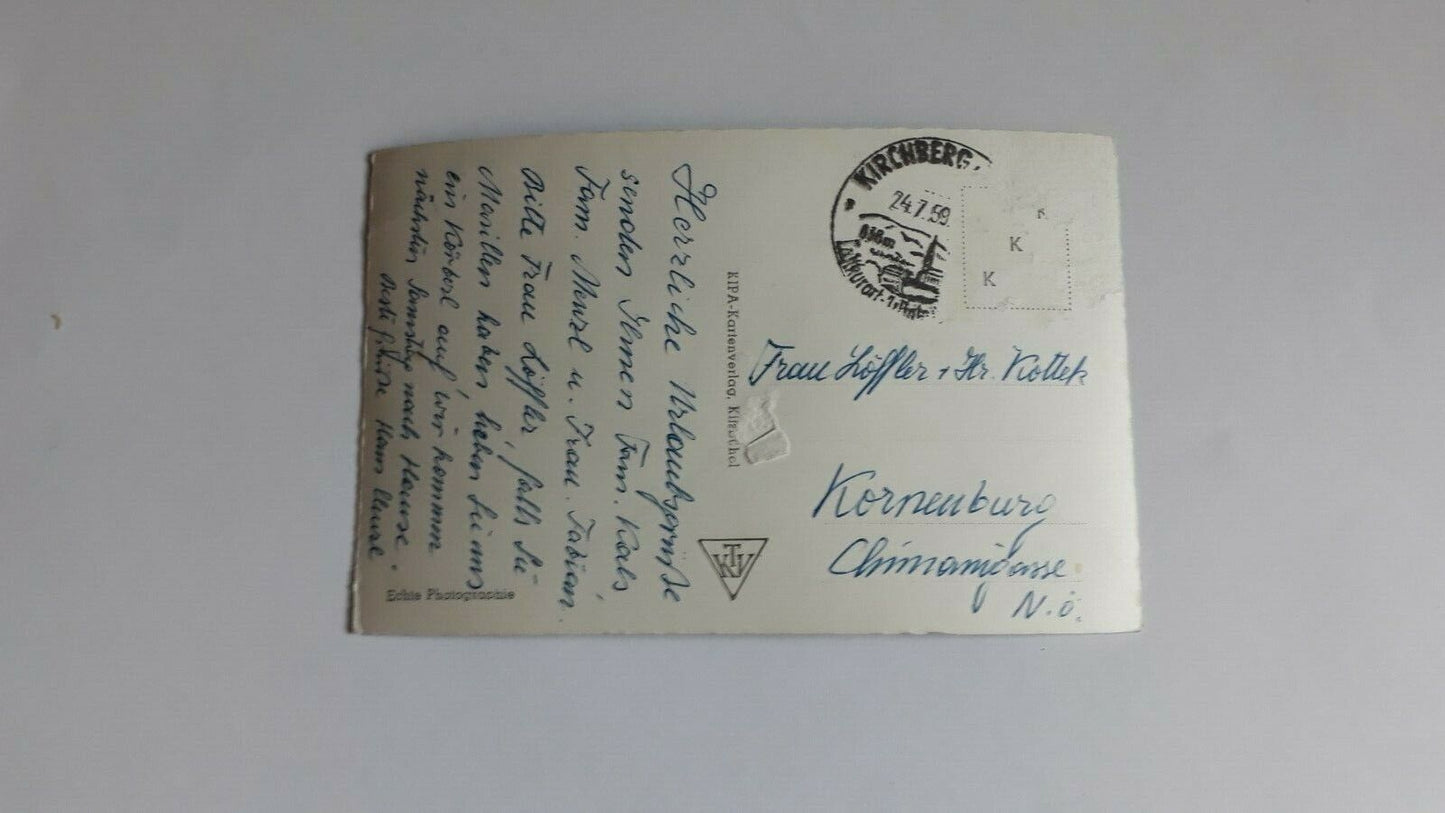 Herrliche Urlaubsgrüße
senden Ihnen Fam. Kals
Fam. Menzl u. Frau Fabian.
Bitte Frau Löffler, falls Sie
Marillen haben, heben Sie uns
ein Körberl auf, wir kommen
nächsten Samstag nach Hause
Beste Grüße Hans
Echte Photographie
KIPA-Kartenverlag, Kitzbühel
KTV
KIRCHBERG
24.7.59
Luftkurort
K
K
K
Frau Löffler + Hr. Kottek
Kornenburg
Chimanigasse
N.Ö.